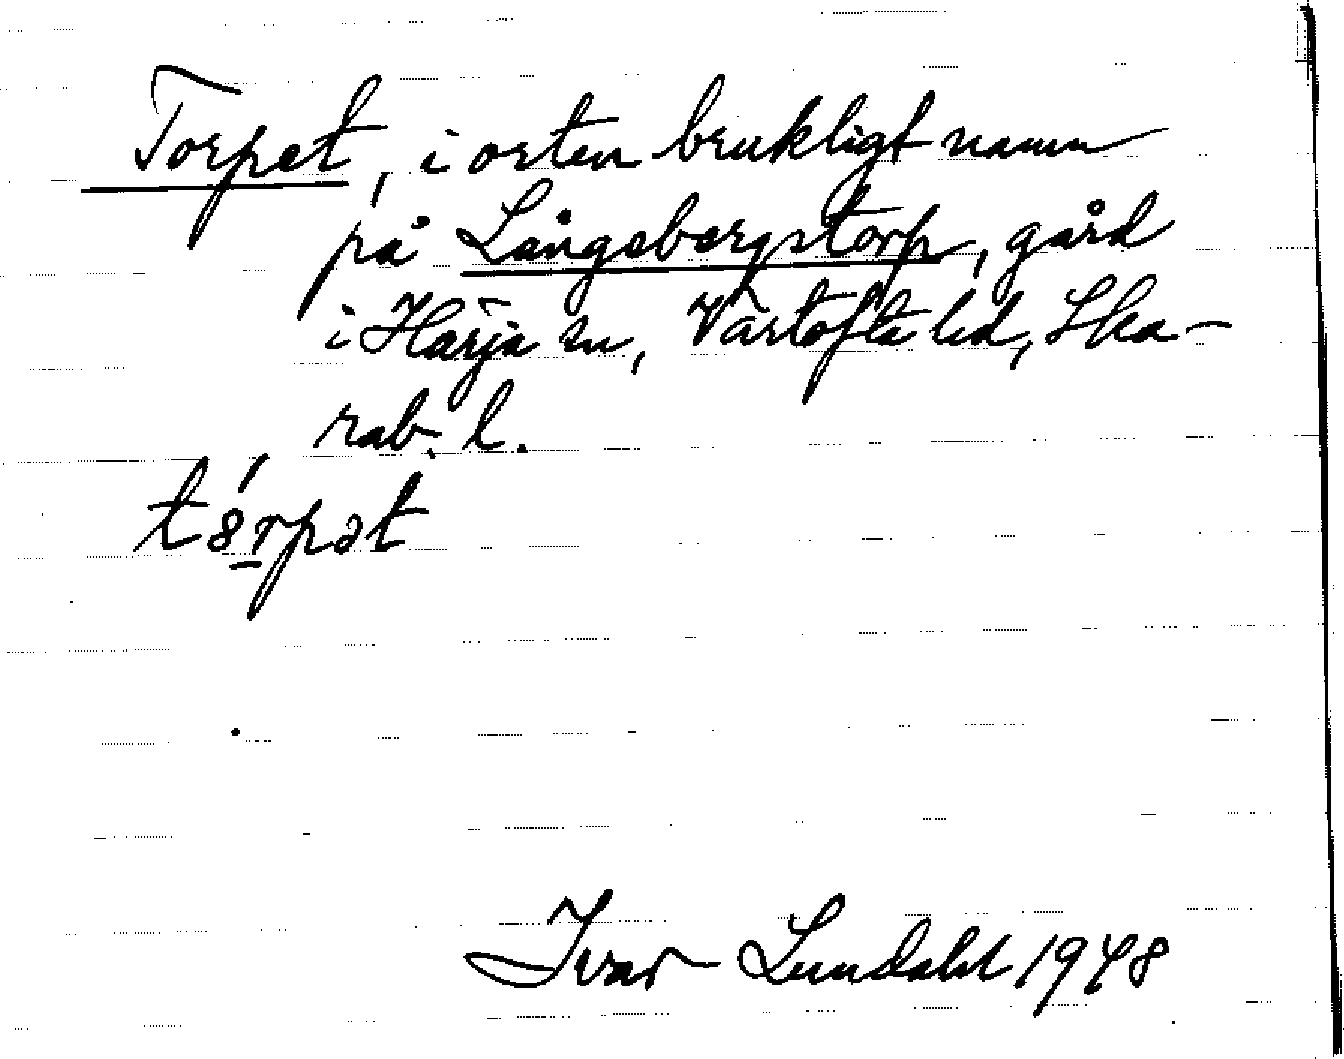 Torpet, i orten brukligt namn
på Långsbergstorp, gård
i Härja sn, Vartofta hd, Ska-
rab. l.
tȣ́rpət
Ivar Lundahl 1948